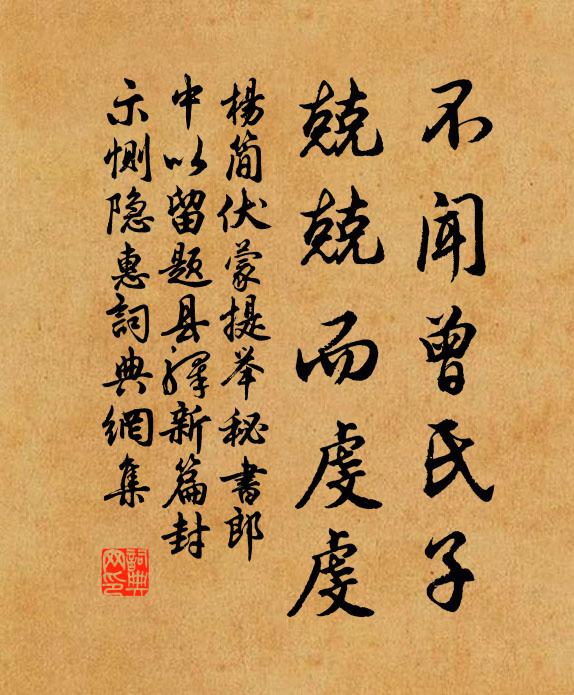 不闻曾氏子
兢兢而虔虔
杨简伏蒙提举秘书郎
中以留题县驿新篇封
示恻隐惠词典網集
詞典網印